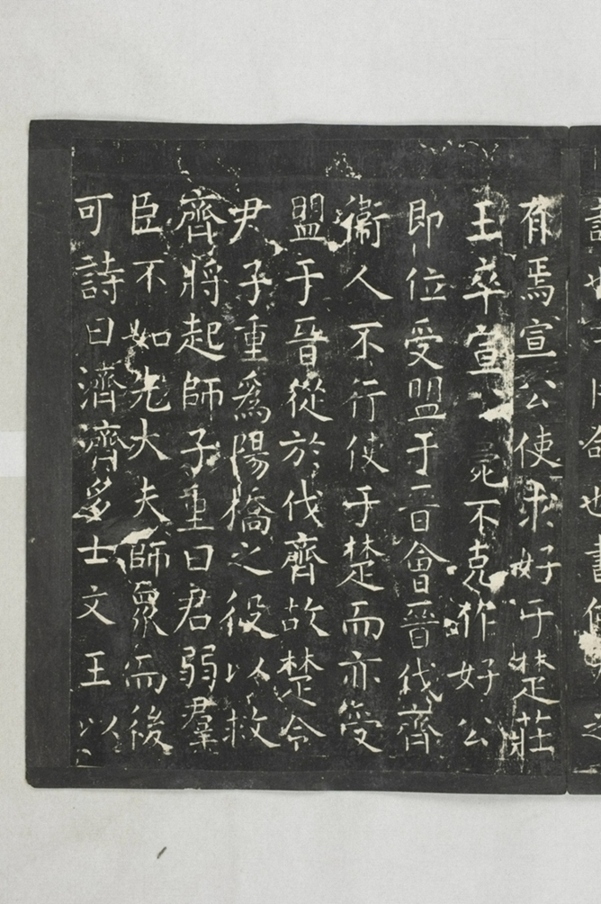 有焉宣公使求好于楚莊
王卒宣公薨不克作好公
即位受盟于晉會晉伐齊
衞人不行使于楚而亦受
盟于晉從於伐齊故楚令
尹子重爲陽橋之役以救
齊將起師子重曰君弱羣
臣不如先大夫師衆而後
可詩曰濟濟多士文王以